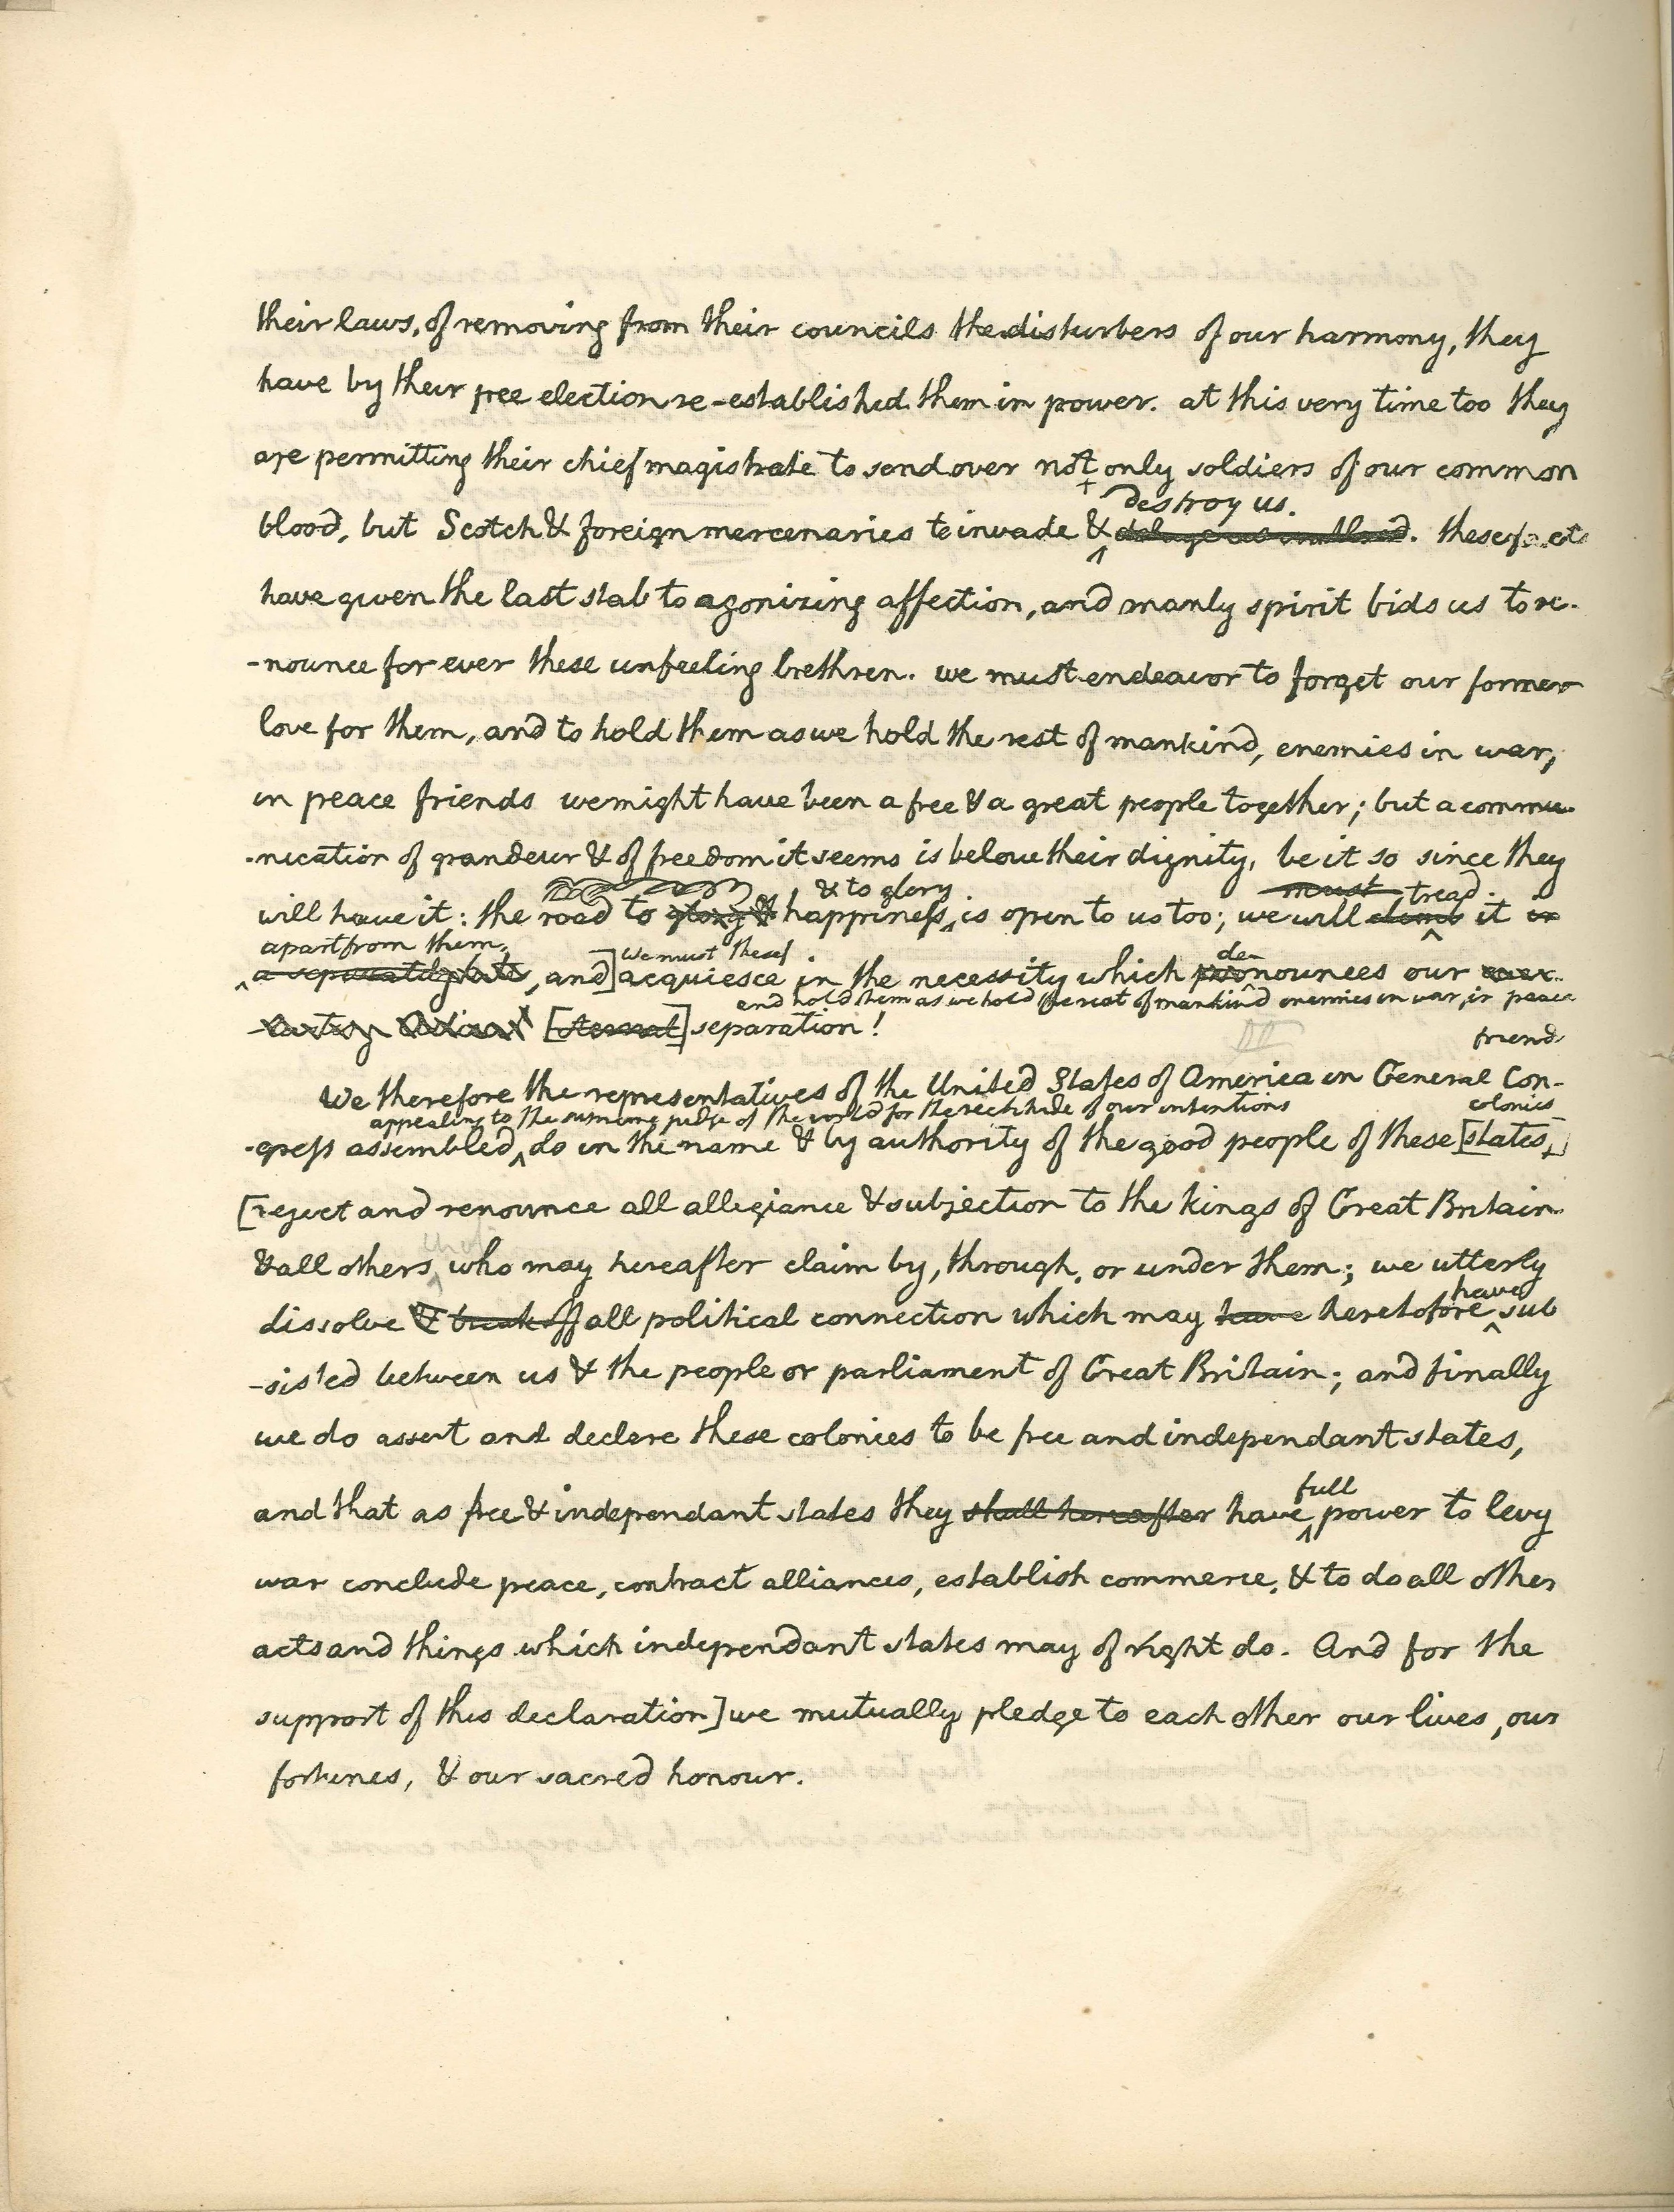 their laws, of removing from their councils the disturbers of our harmony, they
have by their free election re-established them in power. at this very time too they
are permitting their chief magistrate to send over not only soldiers of our common
destroy us.
blood, but Scotch & foreign mercenaries to invade & deluge us in blood. these facts
have given the last stab to agonizing affection, and manly spirit bids us to re-
-nounce for ever these unfeeling brethren. we must endeavor to forget our former
love for them, and to hold them as we hold the rest of mankind, enemies in war,
in peace friends we might have been a free & a great people together; but a commu-
-nication of grandeur & of freedom it seems is below their dignity. be it so since they
& to glory must tread
will have it: the road to glory & happiness is open to us too; we will climb it in
apart from them, We must
a separately state, and] acquiesce in the necessity which pronounces our ever-
de
and hold them as we hold the rest of mankind enemies in war, in peace
friend
[eternal] separation!
We therefore the representatives of the United States of America in General Con-
appealing to the supreme judge of the world for the rectitude of our intentions colonies
-gress assembled, do in the name & by authority of the good people of these [states,]
[reject and renounce all allegiance & subjection to the kings of Great Britain
& all others who may hereafter claim by, through, or under them; we utterly
have
dissolve & break off all political connection which may have heretofore sub
-sisted between us & the people or parliament of Great Britain; and finally
we do assert and declare these colonies to be free and independant states,
full
and that as free & independant states they shall hereafter have power to levy
war conclude peace, contract alliances, establish commerce, & to do all other
acts and things which independant states may of right do. And for the
support of this declaration] we mutually pledge to each other our lives, our
fortunes, & our sacred honour.